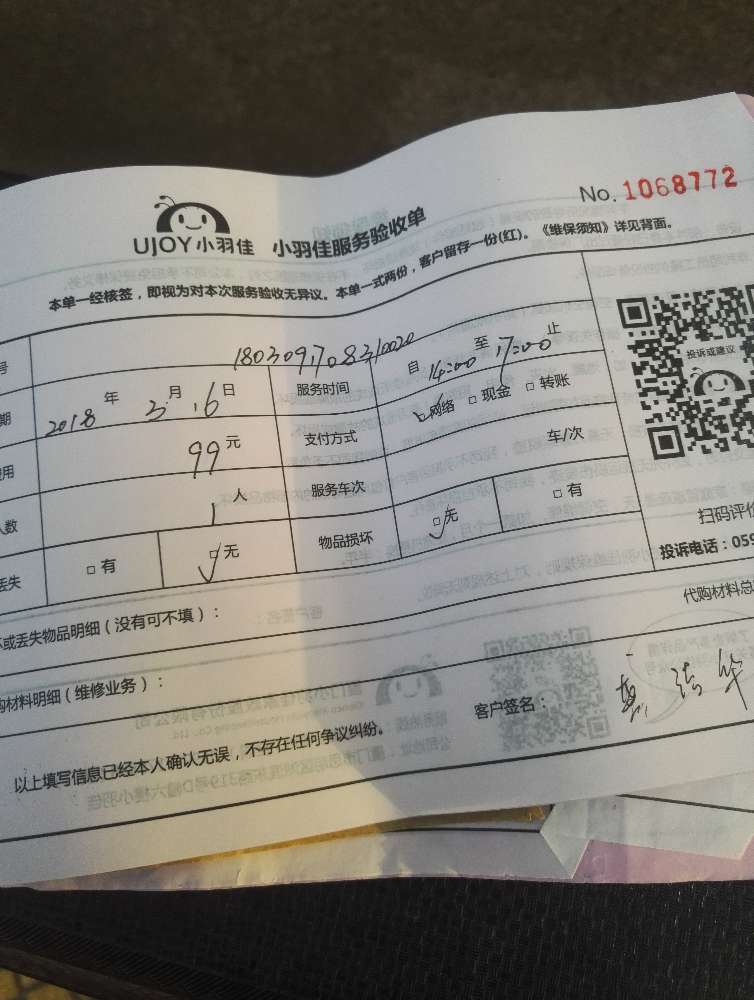 No. 1068772
UJOY小羽佳 小羽佳服务验收单
本单一经核签，即视为对本次服务验收无异议。本单一式两份，客户留存一份(红)。《维保须知》详见背面。
号 1803091708310020
期 2018 年 3 月 16 日 服务时间 自 14:00 至 17:00 止
费用 99 元 支付方式 □网络 □现金 □转账
人数 1 人 服务车次 车/次
丢失 □有 □无 物品损坏 □无 □有
投诉或建议
扫码评价
投诉电话：059
坏或丢失物品明细（没有可不填）：
代购材料总
购材料明细（维修业务）：
客户签名：
以上填写信息已经本人确认无误，不存在任何争议纠纷。